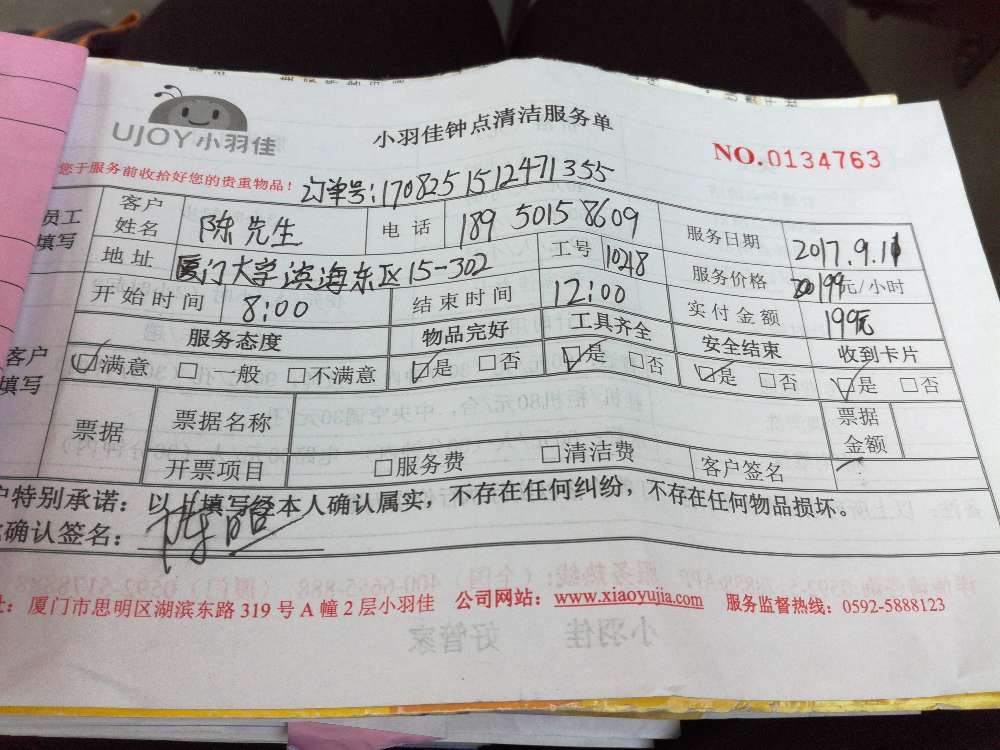 UJOY小羽佳
小羽佳钟点清洁服务单
NO.0134763
您于服务前收拾好您的贵重物品！
订单号:170825151247 1355
员工填写
客户姓名 陈先生 电话 189 5015 8609 服务日期 2017.9.11
地址 厦门大学滨海东区15-302 工号 10218 服务价格 199元/小时
开始时间 8:00 结束时间 12:00 实付金额 199元
客户填写
服务态度 物品完好 工具齐全 安全结束 收到卡片
☑满意 □一般 □不满意 ☑是 □否 ☑是 □否 ☑是 □否 ☑是 □否
票据 票据名称 票据金额
开票项目 □服务费 □清洁费 客户签名
户特别承诺：以上填写经本人确认属实，不存在任何纠纷，不存在任何物品损坏。
确认签名：
址：厦门市思明区湖滨东路319号A幢2层小羽佳 公司网站：www.xiaoyujia.com 服务监督热线：0592-5888123